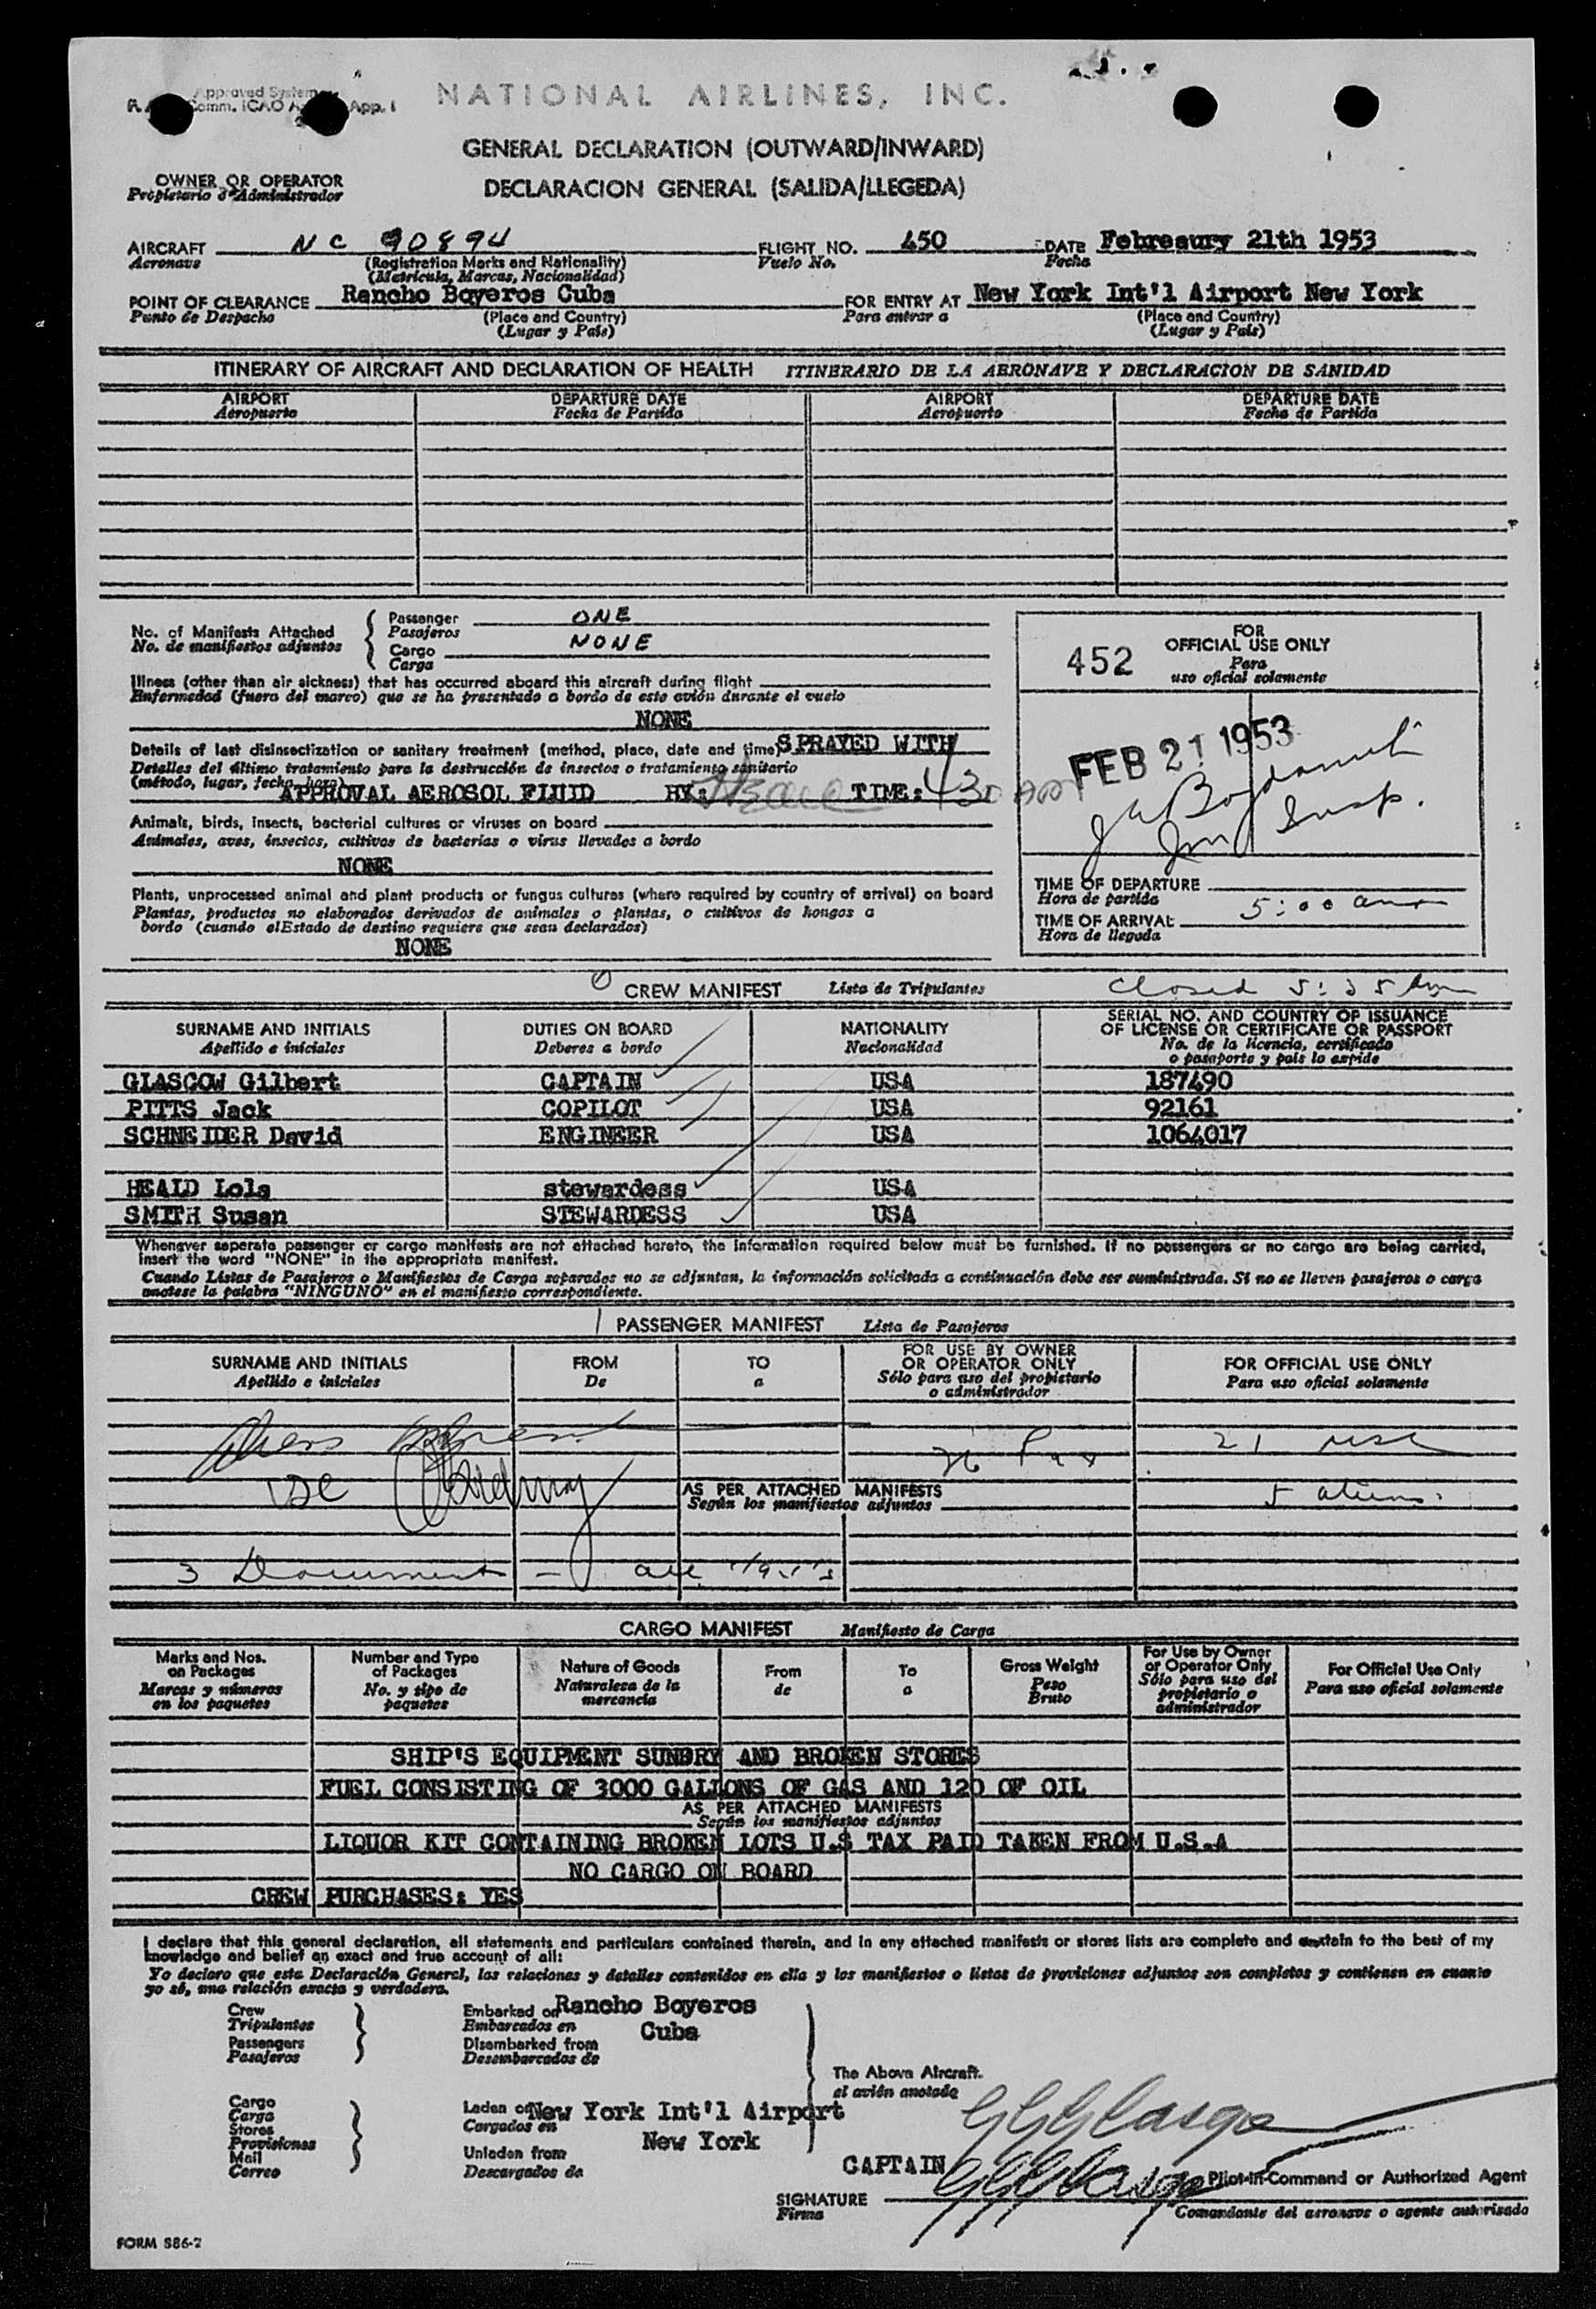 Approved System
Comm. ICAO App. I
NATIONAL AIRLINES, INC.
GENERAL DECLARATION (OUTWARD/INWARD)
DECLARACION GENERAL (SALIDA/LLEGEDA)
OWNER OR OPERATOR
Propietario ó Administrador
AIRCRAFT NC 90894 FLIGHT NO. 450 DATE Febreaury 21th 1953
Aeronave (Registration Marks and Nationality) Vuelo No. Fecha
(Matricula, Marcas, Nacionalidad)
POINT OF CLEARANCE Rancho Boyeros Cuba FOR ENTRY AT New York Int'l Airport New York
Punto de Despacho (Place and Country) Para entrar a (Place and Country)
(Lugar y País) (Lugar y País)
ITINERARY OF AIRCRAFT AND DECLARATION OF HEALTH ITINERARIO DE LA AERONAVE Y DECLARACION DE SANIDAD
AIRPORT DEPARTURE DATE AIRPORT DEPARTURE DATE
Aeropuerto Fecha de Partida Aeropuerto Fecha de Partida
No. of Manifests Attached Passenger ONE
No. de manifiestos adjuntos Pasajeros
Cargo NONE
Carga
Illness (other than air sickness) that has occurred aboard this aircraft during flight
Enfermedad (fuera del mareo) que se ha presentado a bordo de este avión durante el vuelo
NONE
Details of last disinsectization or sanitary treatment (method, place, date and time) SPRAYED WITH
Detalles del último tratamiento para la destrucción de insectos o tratamiento sanitario
(método, lugar, fecha, hora)
APPROVAL AEROSOL FLUID BY: TIME: 430 AM
Animals, birds, insects, bacterial cultures or viruses on board
Animales, aves, insectos, cultivos de bacterias o virus llevados a bordo
NONE
Plants, unprocessed animal and plant products or fungus cultures (where required by country of arrival) on board
Plantas, productos no elaborados derivados de animales o plantas, o cultivos de hongos a
bordo (cuando el Estado de destino requiere que sean declarados)
NONE
FOR
452 OFFICIAL USE ONLY
Para
uso oficial solamente
FEB 21 1953
Imm Insp.
TIME OF DEPARTURE
Hora de partida 5:00 am
TIME OF ARRIVAL
Hora de llegada
CREW MANIFEST Lista de Tripulantes Closed 5:35 Am
SURNAME AND INITIALS DUTIES ON BOARD NATIONALITY SERIAL NO. AND COUNTRY OF ISSUANCE
OF LICENSE OR CERTIFICATE OR PASSPORT
Apellido e iniciales Deberes a bordo Nacionalidad No. de la licencia, certificado
o pasaporte y país lo expide
GLASCOW Gilbert CAPTAIN USA 187490
PITTS Jack COPILOT USA 92161
SCHNEIDER David ENGINEER USA 1064017
HEALD Lola stewardess USA
SMITH Susan STEWARDESS USA
Whenever seperate passenger or cargo manifests are not attached hereto, the information required below must be furnished. If no passengers or no cargo are being carried,
insert the word "NONE" in the appropriate manifest.
Cuando Listas de Pasajeros o Manifiestos de Cerga separados no se adjuntan, la información solicitada a continuación debe ser suministrada. Si no se lleven pasajeros o carga
anotese la palabra "NINGUNO" en el manifiesto correspondiente.
PASSENGER MANIFEST Lista de Pasajeros
SURNAME AND INITIALS FROM TO FOR USE BY OWNER
OR OPERATOR ONLY FOR OFFICIAL USE ONLY
Apellido e iniciales De a Sólo para uso del propietario
o administrador Para uso oficial solamente
26 Pax 21 usc
AS PER ATTACHED MANIFESTS 5 aliens
Según los manifiestos adjuntos
3 Document - all
CARGO MANIFEST Manifiesto de Carga
Marks and Nos.
on Packages
Marcas y números
en los paquetes
Number and Type
of Packages
No. y tipo de
paquetes
Nature of Goods
Naturaleza de la
mercancia
From
de
To
a
Gross Weight
Peso
Bruto
For Use by Owner
or Operator Only
Sólo para uso del
propietario o
administrador
For Official Use Only
Para uso oficial solamente
SHIP'S EQUIPMENT SUNDRY AND BROKEN STORES
FUEL CONSISTING OF 3000 GALLONS OF GAS AND 120 OF OIL
AS PER ATTACHED MANIFESTS
Según los manifiestos adjuntos
LIQUOR KIT CONTAINING BROKEN LOTS U.S TAX PAID TAKEN FROM U.S.A
NO CARGO ON BOARD
CREW PURCHASES: YES
I declare that this general declaration, all statements and particulars contained therein, and in any attached manifests or stores lists are complete and contain to the best of my
knowledge and belief an exact and true account of all:
Yo declaro que esta Declaración General, las relaciones y detalles contenidos en ella y los manifiestos o listas de provisiones adjuntos son completos y contienen en cuanto
yo sé, una relación exacta y verdadera.
Crew
Tripulantes
Passengers
Pasajeros
Embarked on Rancho Boyeros
Embarcados en Cuba
Disembarked from
Desembarcados de
The Above Aircraft.
el avión anotado
Cargo
Carga
Stores
Provisiones
Mail
Correo
Laden on New York Int'l Airport
Cargados en
New York
Unladen from
Descargados de
CAPTAIN
Pilot-in-Command or Authorized Agent
SIGNATURE
Firma
Comandante del aeronave o agente autorizado
FORM 886-2